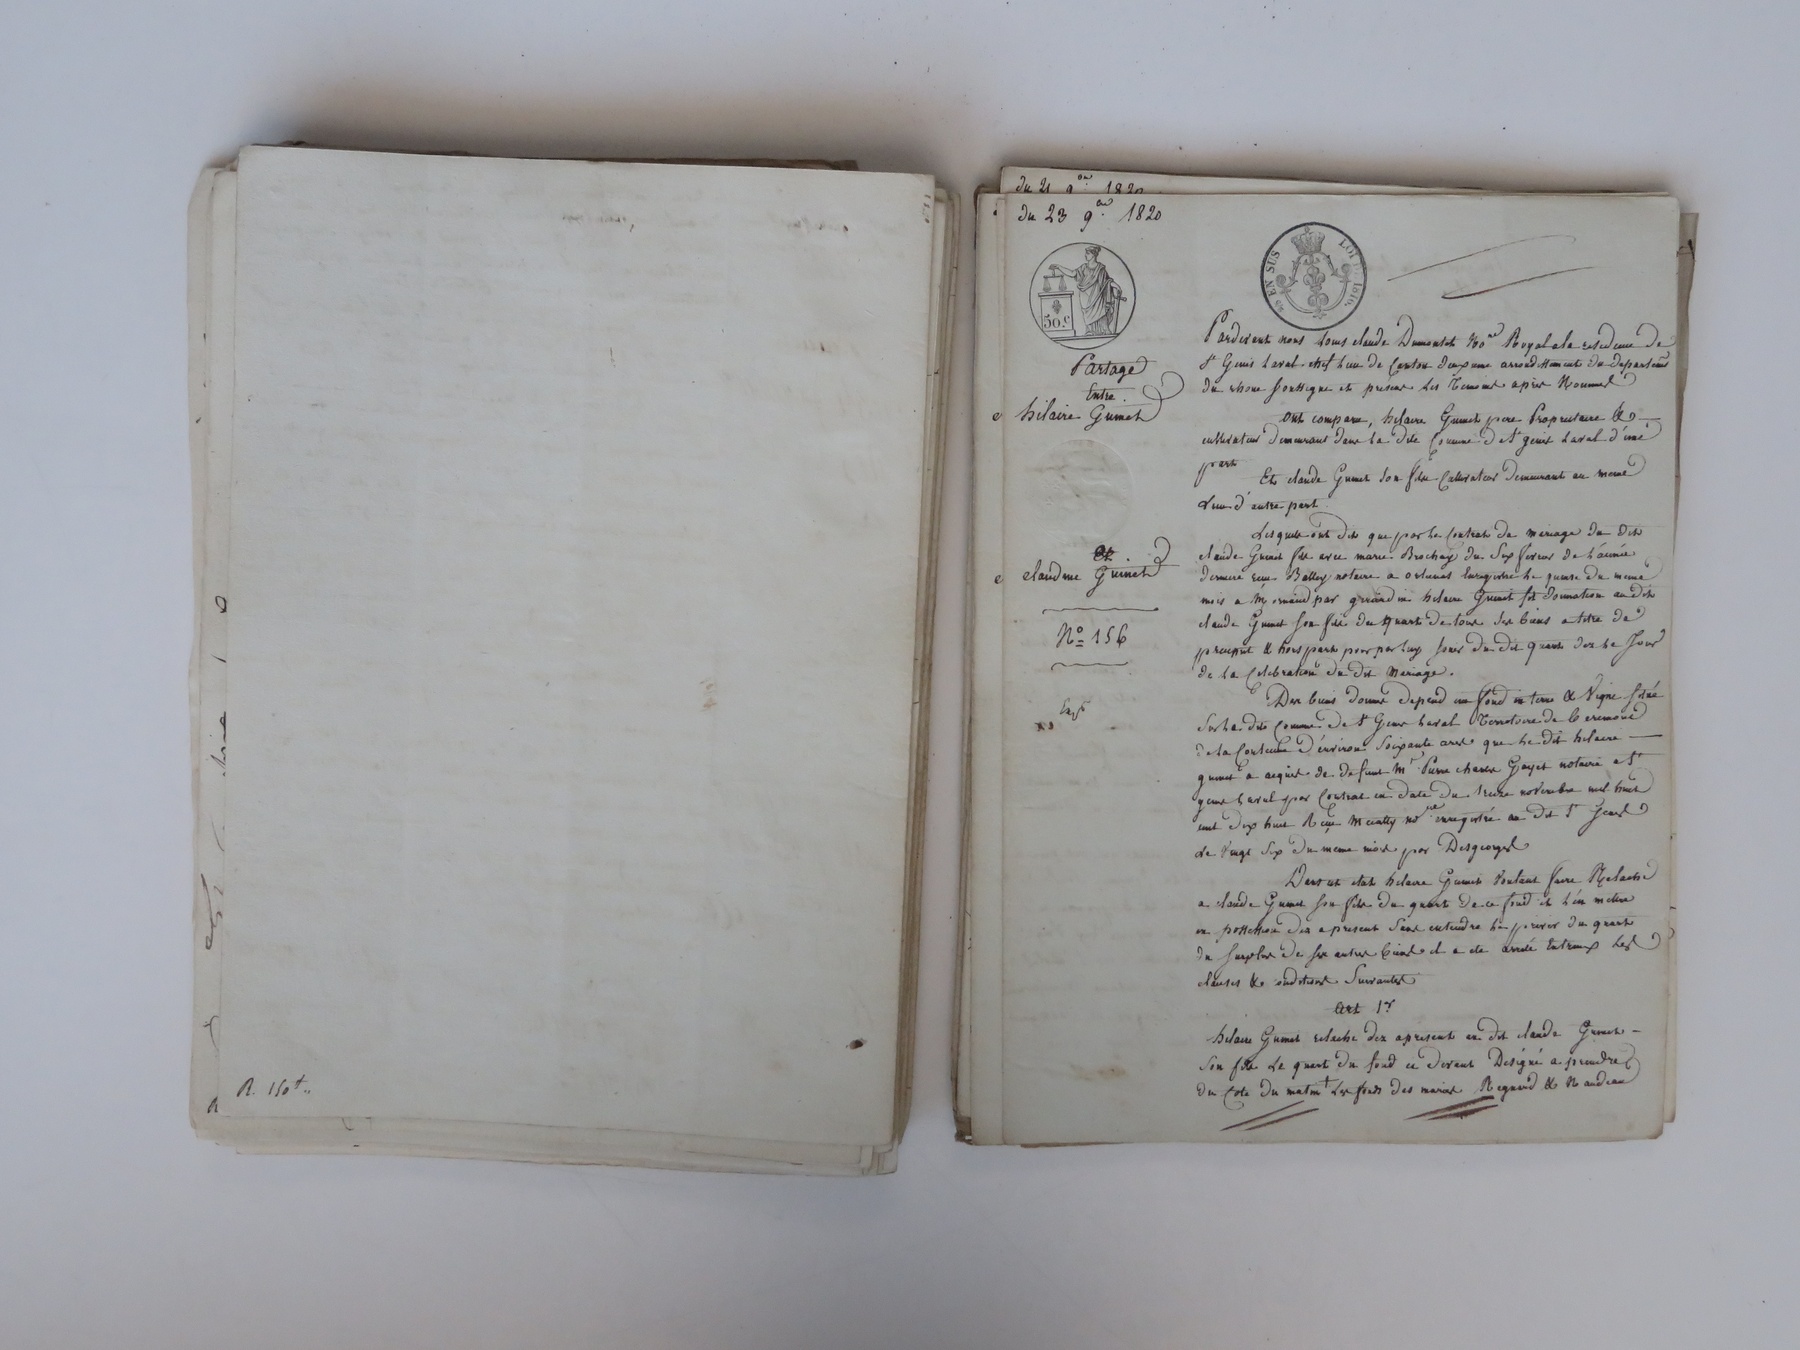 R. 150
du 21 9bre 1820
du 23 9bre 1820
50.c
EN SUS LOI DE 1816.
Partage
Entre
hilaire Grimet
Et
claudme Grimet
No 156
Pardevant nous Louis claude Dumontet No.re Royal a la residence de
St Genis Laval chef lieu de Canton deuxieme arrondissement du departement
du rhone soussigné et presens les Temoins après Nommés
Ont comparu, hilaire Grimet pere Proprietaire &
cultivateur demeurant dans la dite Commune de St genis Laval d'une
part
Et claude Grimet son fils Cultivateur demeurant au meme
Lieu d'autre part
Lesquels ont dit que par le Contrat de mariage du dit
claude Grimet fils avec marie Brochay du Six fevrier de L'année
derniere reçu Balley notaire a orlienas Enregistré le quinze du meme
mois a Mornand par hilaire Grimet fit donnation au dit
claude Grimet son fils du quart de tous ses biens a titre de
preciput & hors part pour par luy jouir du dit quart dez le Jour
de la Celebration du dit Mariage.
Des biens donnés depend un fond en terre & Vigne situé
Sur la dite Commune de St Genis Laval Territoire de
de la Contenue d'environ Soixante ares que le dit hilaire
grimet a acquis de defunt Mr Pierre charles Goyet notaire a St
genis Laval par Contrat en date du treize novembre mil huit
cent dix huit Reçu no.re enregistré au dit St Genis
Le Vingt Six du meme mois par Desgeorges
Dans cet etat hilaire Grimet Voulant faire Relache
a claude Grimet son fils du quart de ce fond et L'en mettre
en possession dez a present Sans entendre le priver du quart
du surplus de ses autres biens il a été arreté Entreux Les
clauses & conditions Suivantes
Art 1r
hilaire Grimet relache dez apresent au dit claude Grimet
Son fils Le quart du fond ci devant Designé a prendre
du Coté du matin Les fonds des maries Regnard & Nandeau